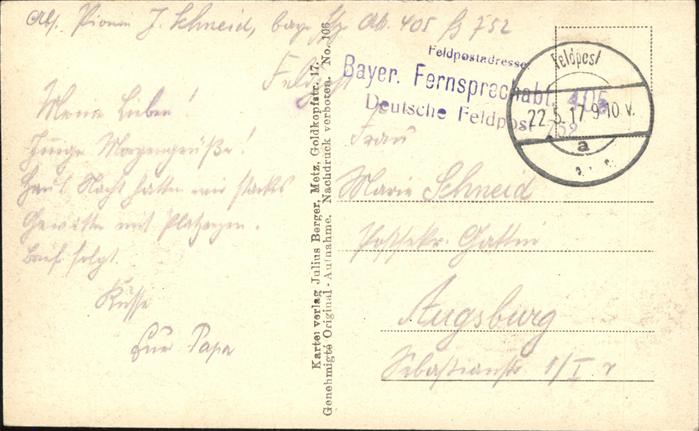 Abs. Pionier J. Schneid, bayr. Fsp. Abt. 405 B 752
Feldpost
Meine Lieben!
Innige Morgengrüße!
Heut Nacht hatten wir starkes
Gewitter mit Platzregen.
Brief folgt.
Küsse
Euer Papa
Karten verlag Julius Berger, Metz, Goldkopfstr. 17.
Genehmigte Original-Aufnahme. Nachdruck verboten. No. 106
Feldpostadresse
Bayer. Fernsprechabt. 405
Deutsche Feldpost 752
Feldpost
22.5.17 9-10 V.
a
Frau
Marie Schneid
Postsekr. Gattin
Augsburg
Sebastianstr. 1/I r